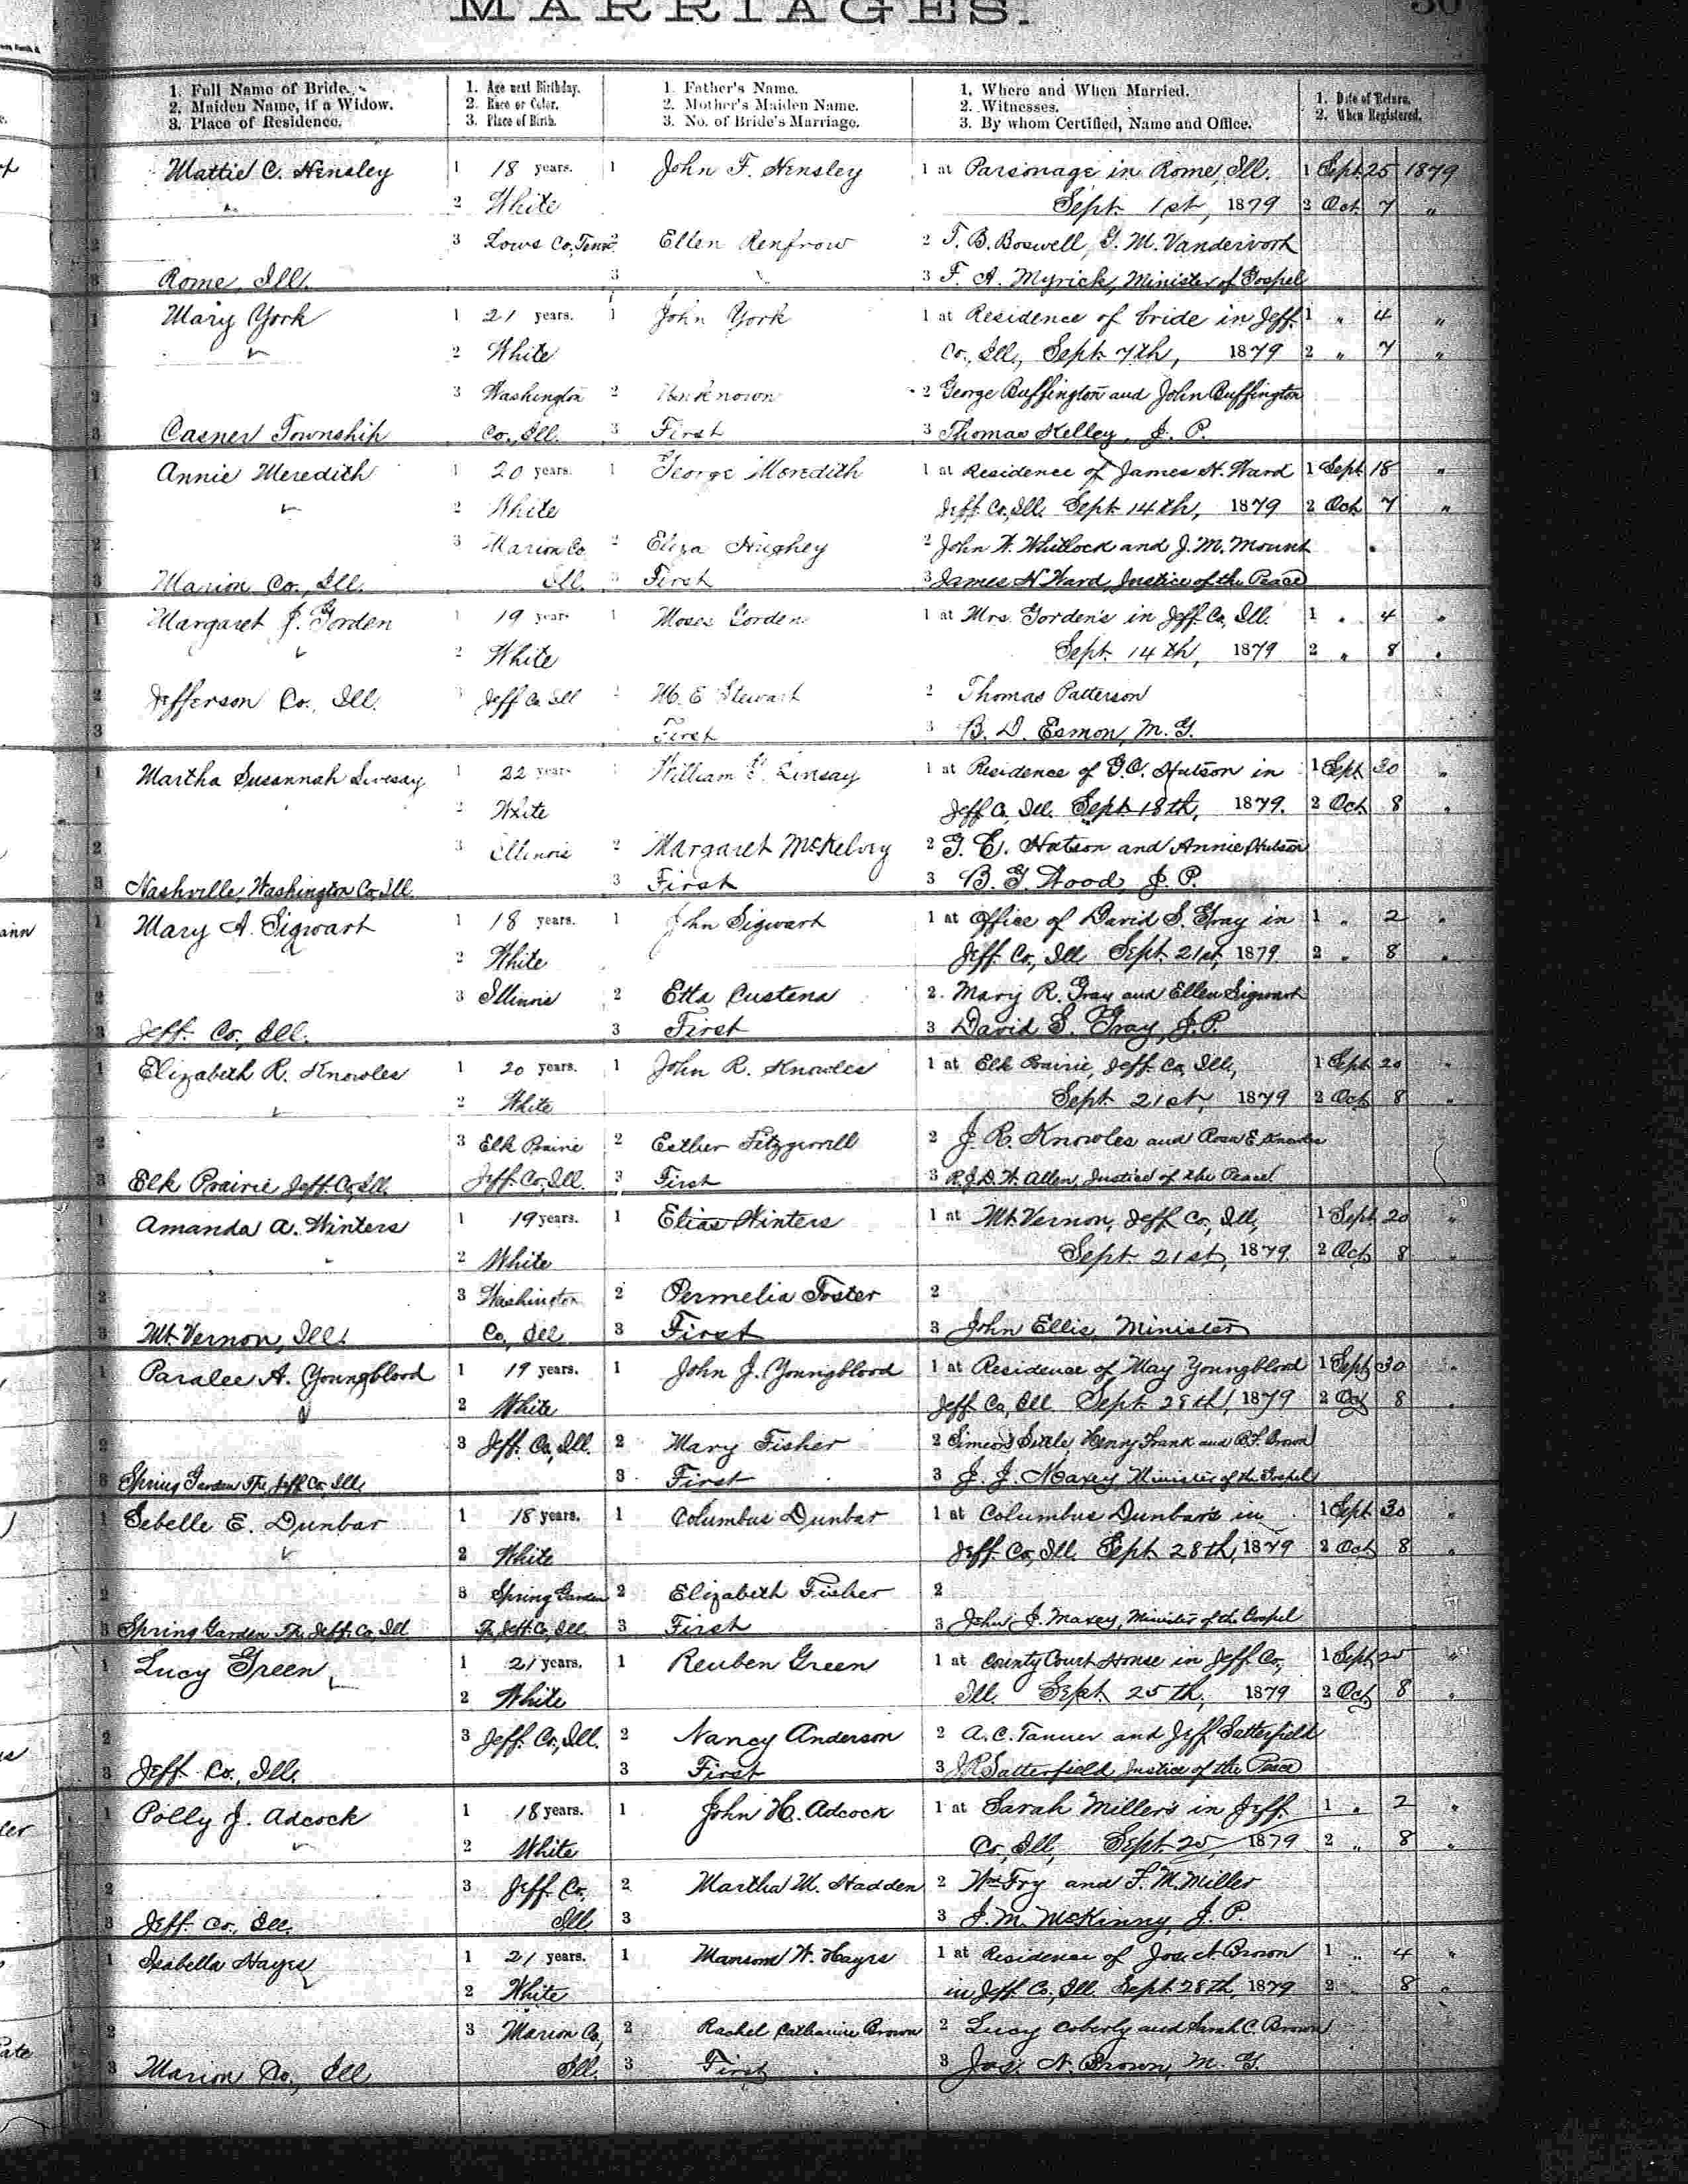 MARRIAGES.
1. Full Name of Bride.
2. Maiden Name, if a Widow.
3. Place of Residence.
1. Age next Birthday.
2. Race or Color.
3. Place of Birth.
1. Father's Name.
2. Mother's Maiden Name.
3. No. of Bride's Marriage.
1. Where and When Married.
2. Witnesses.
3. By whom Certified, Name and Office.
1. Date of Return.
2. When Registered.
1 Mattie C. Hensley 1 18 years. 1 John F. Hensley 1 at Parsonage in Rome, Ill. 1 Sept. 25 1879
2 White Sept. 1st, 1879 2 Oct. 7 "
2 3 Lows Co, Tenn. 2 Ellen Renfrow 2 T. B. Boswell, G. M. Vandervort
3 Rome, Ill. 3 3 F. A. Myrick, Minister of Gospel
1 Mary York 1 21 years. 1 John York 1 at Residence of bride in Jeff. 1 " 4 "
2 White Co., Ill., Sept. 7th, 1879 2 " 7 "
2 3 Washington 2 Unknown 2 George Buffington and John Buffington
3 Casner Township Co., Ill. 3 First 3 Thomas Kelley, J. P.
1 Annie Meredith 1 20 years. 1 George Meredith 1 at Residence of James H. Ward 1 Sept. 18 "
2 White Jeff. Co., Ill. Sept. 14th, 1879 2 Oct. 7 "
2 3 Marion Co. 2 Eliza Hughey 2 John W. Whitlock and J. M. Mount
3 Marion Co., Ill. Ill. 3 First 3 James H. Ward, Justice of the Peace
1 Margaret J. Gorden 1 19 years 1 Moses Gorden 1 at Mrs. Gorden's in Jeff. Co., Ill. 1 " 4 "
2 White Sept. 14th, 1879 2 " 8 "
2 Jefferson Co., Ill. 3 Jeff Co. Ill 2 M. E. Stewart 2 Thomas Patterson
3 First 3 B. D. Esmon, M. G.
1 Martha Susannah Livesay 1 22 years 1 William Linsay 1 at Residence of G. C. Hutson in 1 Sept. 30 "
2 White Jeff. Co., Ill. Sept. 18th, 1879. 2 Oct. 8 "
2 3 Illinois 2 Margaret McKelvey 2 G. E. Hutson and Annie Hutson
3 Nashville, Washington Co., Ill. 3 First 3 B. G. Wood, J. P.
1 Mary A. Sigwart 1 18 years. 1 John Sigwart 1 at Office of David S. Gray in 1 " 2 "
2 White Jeff. Co., Ill Sept. 21st, 1879 2 " 8 "
2 3 Illinois 2 Etta Custena 2. Mary R. Gray and Ellen Sigwart
3 Jeff. Co., Ill. 3 First 3 David S. Gray, J. P.
1 Elizabeth R. Knowles 1 20 years. 1 John R. Knowles 1 at Elk Prairie, Jeff. Co., Ill., 1 Sept. 20 "
2 White Sept. 21st, 1879 2 Oct. 8 "
2 3 Elk Prairie 2 Esther Fitzgerrell 2 J. R. Knowles and Rosa E. Knowles
3 Elk Prairie Jeff. Co., Ill. Jeff. Co., Ill. 3 First 3 R. J. D. W. Allen, Justice of the Peace
1 Amanda A. Winters 1 19 years. 1 Elias Winters 1 at Mt. Vernon, Jeff. Co., Ill., 1 Sept. 20 "
2 White Sept. 21st, 1879 2 Oct. 8
2 3 Washington 2 Permelia Foster 2
3 Mt. Vernon, Ill. Co., Ill 3 First 3 John Ellis, Minister
1 Paralee A. Youngblood 1 19 years. 1 John J. Youngblood 1 at Residence of May Youngblood 1 Sept. 30 "
2 White Jeff. Co., Ill. Sept. 28th, 1879 2 Oct. 8 "
2 3 Jeff. Co., Ill. 2 Mary Fisher 2 Simeon Henry Frank and B. F. Brown
3 Spring Garden Tp., Jeff. Co., Ill. 3 First 3 J. J. Maxey, Minister of the Gospel
1 Sebelle E. Dunbar 1 18 years. 1 Columbus Dunbar 1 at Columbus Dunbar's in 1 Sept. 30 "
2 White Jeff. Co., Ill. Sept. 28th, 1879 2 Oct. 8 "
2 3 Spring Garden 2 Elizabeth Fisher 2
3 Spring Garden Tp., Jeff. Co., Ill Tp., Jeff. Co., Ill. 3 First 3 John J. Maxey, Minister of the Gospel
1 Lucy Green 1 21 years. 1 Reuben Green 1 at County Court House in Jeff. Co., 1 Sept. 25 "
2 White Ill. Sept. 25th, 1879 2 Oct. 8 "
2 3 Jeff. Co., Ill. 2 Nancy Anderson 2 A. C. Tanner and Jeff Satterfield
3 Jeff. Co., Ill. 3 First 3 J. R. Satterfield, Justice of the Peace
1 Polly J. Adcock 1 18 years. 1 John H. Adcock 1 at Sarah Miller's in Jeff. 1 " 2 "
2 White Co., Ill., Sept. 25, 1879 2 " 8 "
2 3 Jeff. Co., 2 Martha M. Hadden 2 Wm. Fry and F. M. Miller
3 Jeff. Co., Ill. Ill 3 3 J. M. McKinny, J. P.
1 Isabella Hayes 1 21 years. 1 Mansom W. Hayes 1 at Residence of Jos. N. Brown 1 " 4 "
2 White in Jeff. Co., Ill Sept. 28th, 1879 2 8 "
2 3 Marion Co., 2 Rachel Catharine Brown 2 Lucy Coberly and Sarah C. Brown
3 Marion Co., Ill Ill. 3 First 3 Jas. N. Brown, M. G.